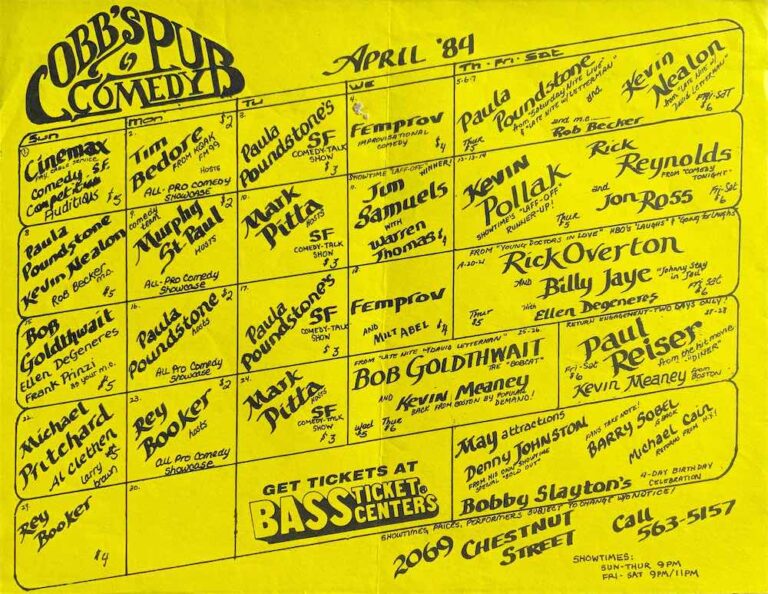 COBB'S PUB
COMEDY
APRIL '84
Sun
Mon
Tu
We
Th · Fri · Sat
1.
Cinemax
PAY CABLE SERVICE
Comedy S.F.
Competition
Auditions $5
2.
$2
Tim
Bedore
FROM KQAK
FM 99
HOSTS
ALL-PRO COMEDY
SHOWCASE
3.
Paula
Poundstone's
SF
COMEDY-TALK
SHOW
$3
4.
Femprov
IMPROVISATIONAL
COMEDY
$4
5·6·7
Paula
Poundstone
from "SATURDAY NITE LIVE"
"LATE NITE W/ LETTERMAN"
and
Kevin
Nealon
from "LATE NITE W/
DAVID LETTERMAN"
Thur
$5
and m.c.
Rob Becker
Fri-Sat
$6
8.
Paula
Poundstone
Kevin Nealon
Rob Becker m.c.
$5
9.
$2
comedy
team
Murphy
St Paul
HOSTS
ALL-PRO COMEDY
Showcase
10.
Mark
Pitta
HOSTS
SF
COMEDY-TALK
SHOW
$3
SHOWTIME "LAFF-OFF" WINNER!
11.
Jim
Samuels
WITH
Warren
Thomas $4
12·13·14
Kevin
Pollak
SHOWTIME'S "LAFF-OFF"
RUNNER-UP!
Thur
$5
Rick
Reynolds
FROM "COMEDY
TONIGHT"
and
Jon Ross
Fri-Sat
$6
15.
Bob
Goldthwait
Ellen DeGeneres
Frank Prinzi
as your m.c.
$5
16.
Paula $2
Poundstone
hosts
All Pro Comedy
Showcase
17.
Paula
Poundstone's
SF
COMEDY-TALK
SHOW
$3
18.
Femprov
AND MILT ABEL $4
FROM "YOUNG DOCTORS IN LOVE" HBO'S "LAUGHS" & "Going for Laughs"
19-20-21
Rick Overton
AND Billy Jaye "Johnny Stay
in Jail"
With
Ellen Degeneres
Thur
$5
Fri Sat
$6
22.
Michael
Pritchard
Al Clethen
Larry $5
Brown
23.
$2
Rey
Booker
hosts
All Pro Comedy
Showcase
24.
Mark
Pitta
HOSTS
SF
COMEDY-TALK
SHOW
$3
FROM "LATE NITE" "DAVID LETTERMAN" 25-26.
BOB GOLDTHWAIT
THE "BOBCAT"
AND Kevin Meaney
BACK FROM BOSTON BY POPULAR
DEMAND!
Wed
$5
Thur
$6
RETURN ENGAGEMENT-TWO DAYS ONLY!
27-28
Paul
Reiser
Fri-Sat
$6
from the hit movie
"DINER"
Kevin Meaney from
BOSTON
29.
Rey
Booker
$4
30.
GET TICKETS AT
BASS TICKET
CENTERS
May attractions
Denny Johnston
FROM HIS OWN SHOWTIME
SPECIAL "SOLD OUT"
FANS TAKE NOTE!
BARRY SOBEL
IS BACK
Michael Cain
RETURNS FROM N.Y.!
Bobby Slayton's 4-DAY BIRTHDAY
CELEBRATION
SHOWTIMES, PRICES, PERFORMERS SUBJECT TO CHANGE W/O NOTICE!
2069 CHESTNUT
STREET
Call
563-5157
SHOWTIMES:
SUN-THUR 9PM
FRI-SAT 9PM/11PM